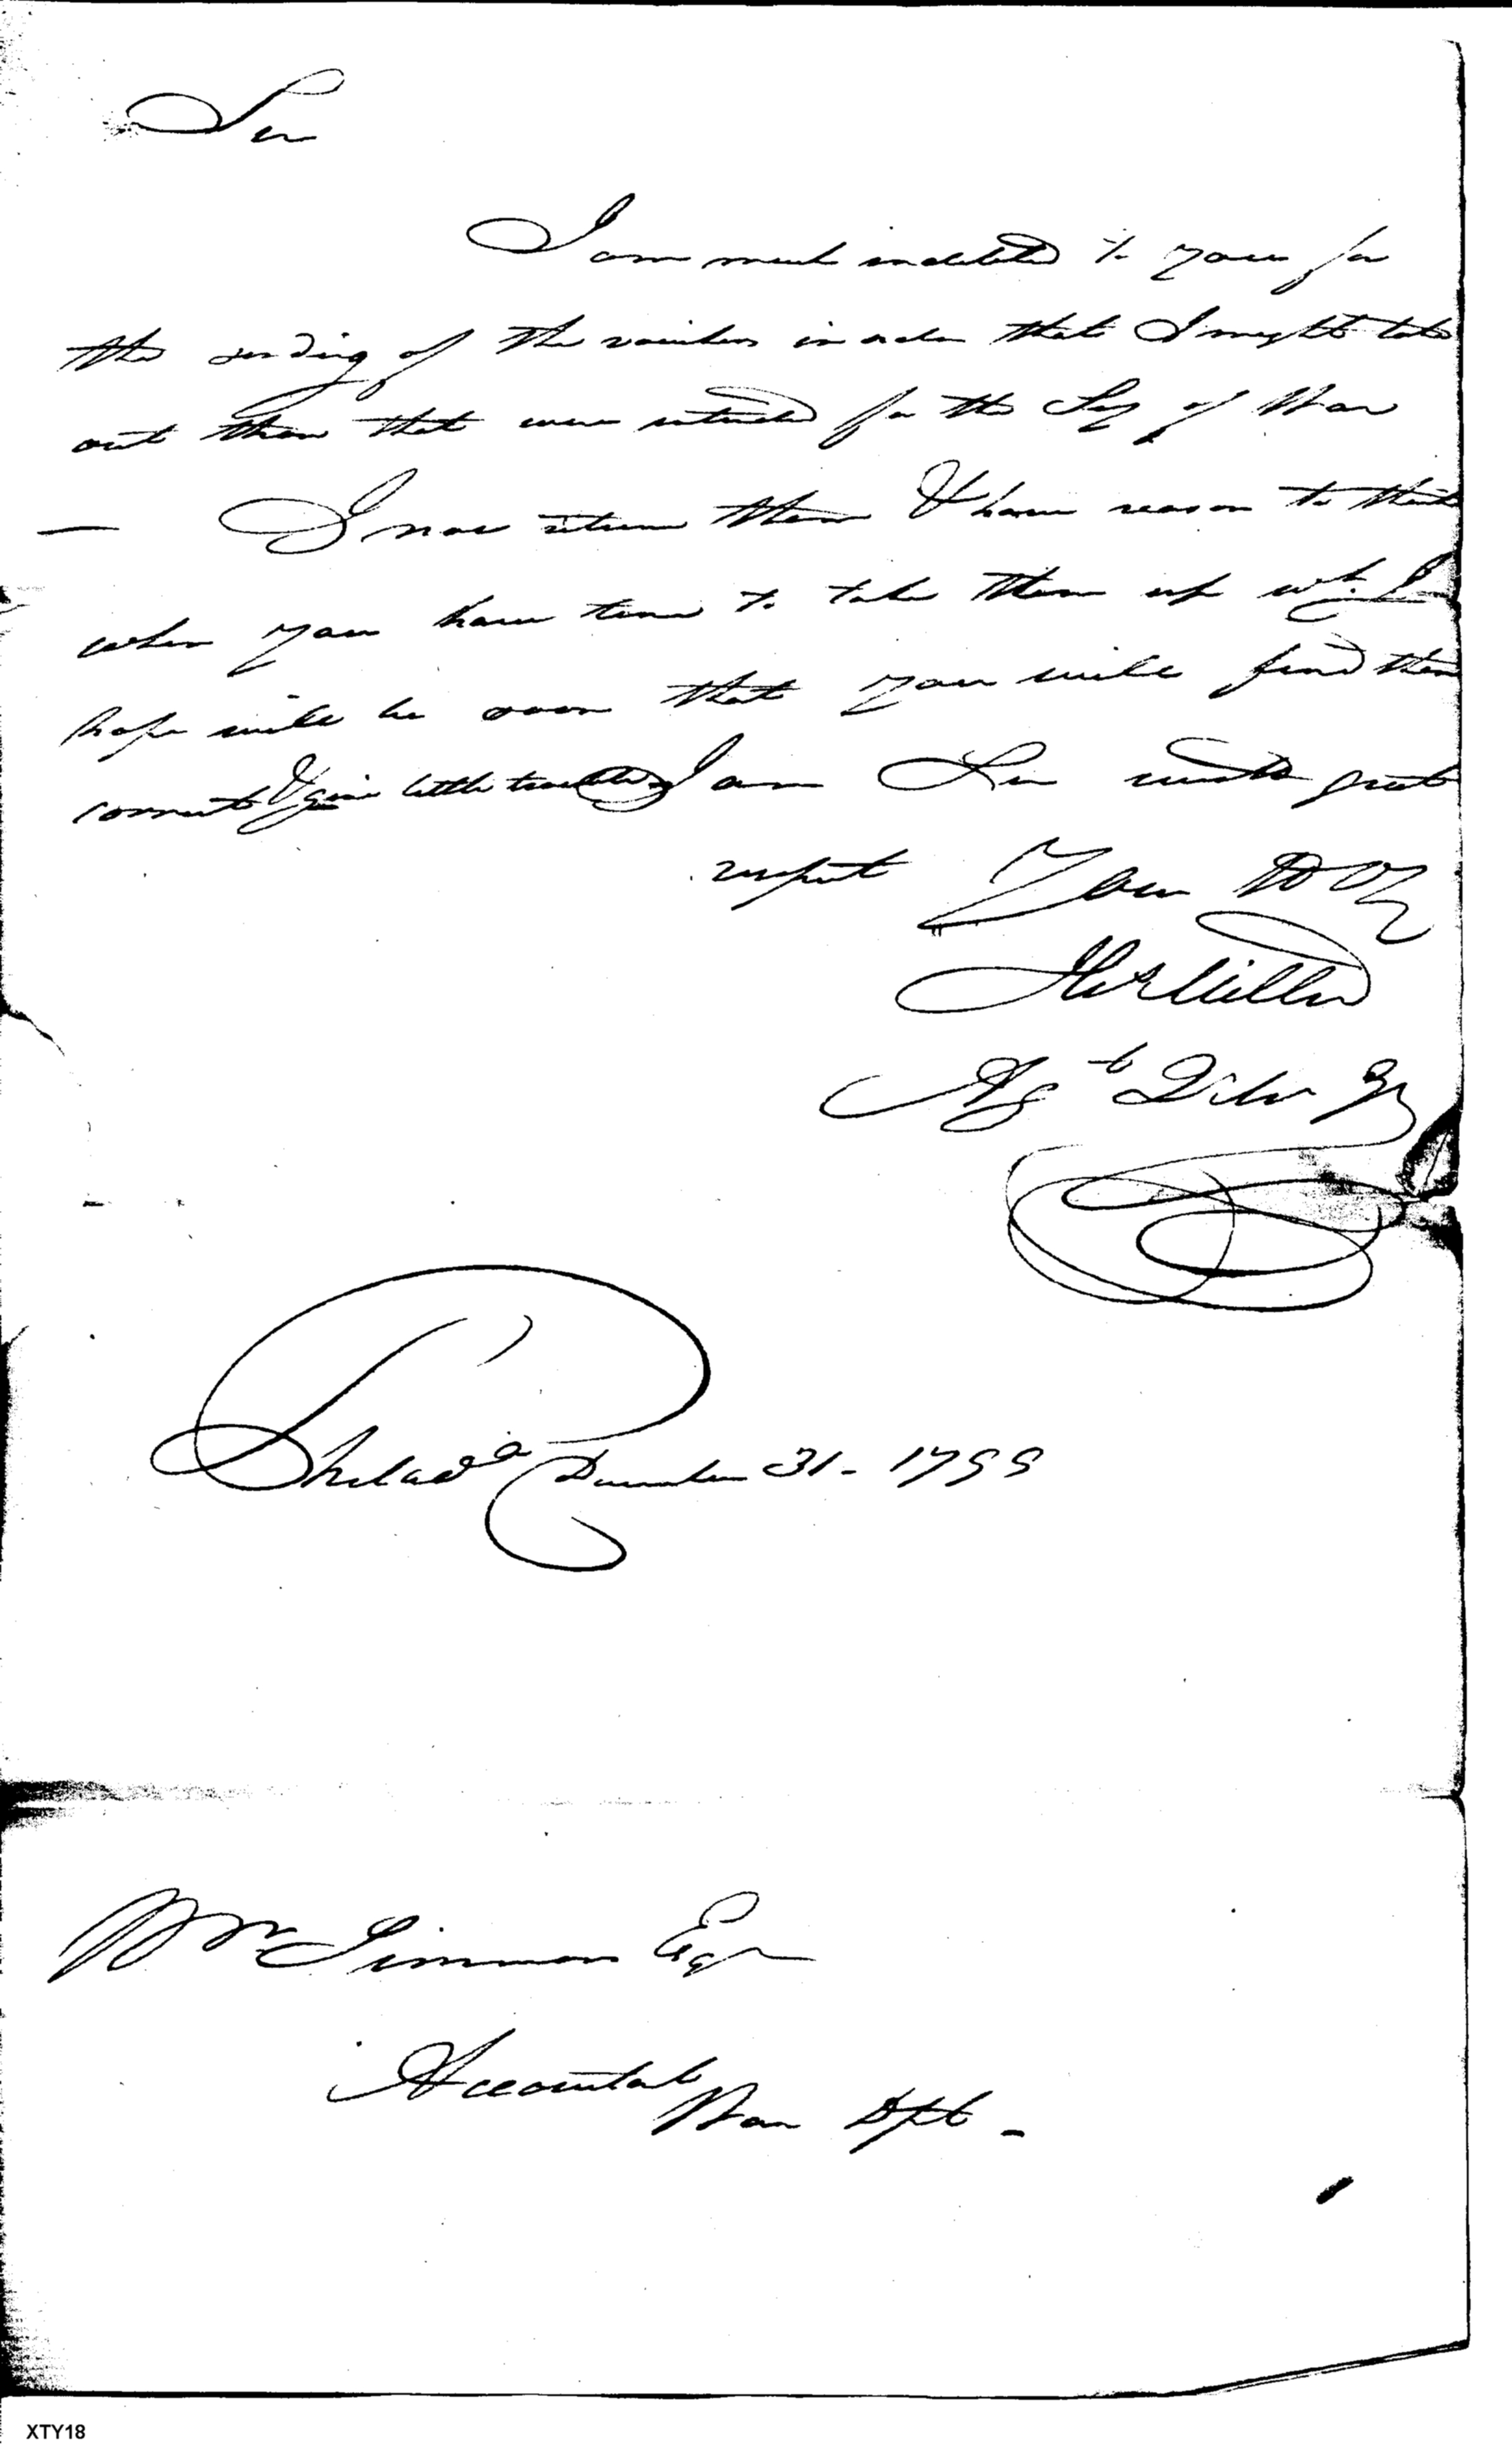 Sir
I am much indebted to you for
the sending of the vouchers in order that I might take
out them that were intended for the Secy of War
— I now return them & have reason to think
when you have time to take them up wh. I
hope will be soon that you will find them
correct & give little trouble I am Sir with great
respect Your
Miller
Agt
Philada December 31 - 1799
Wm Simmons Esqr
Accountant
War Dpt -
XTY18